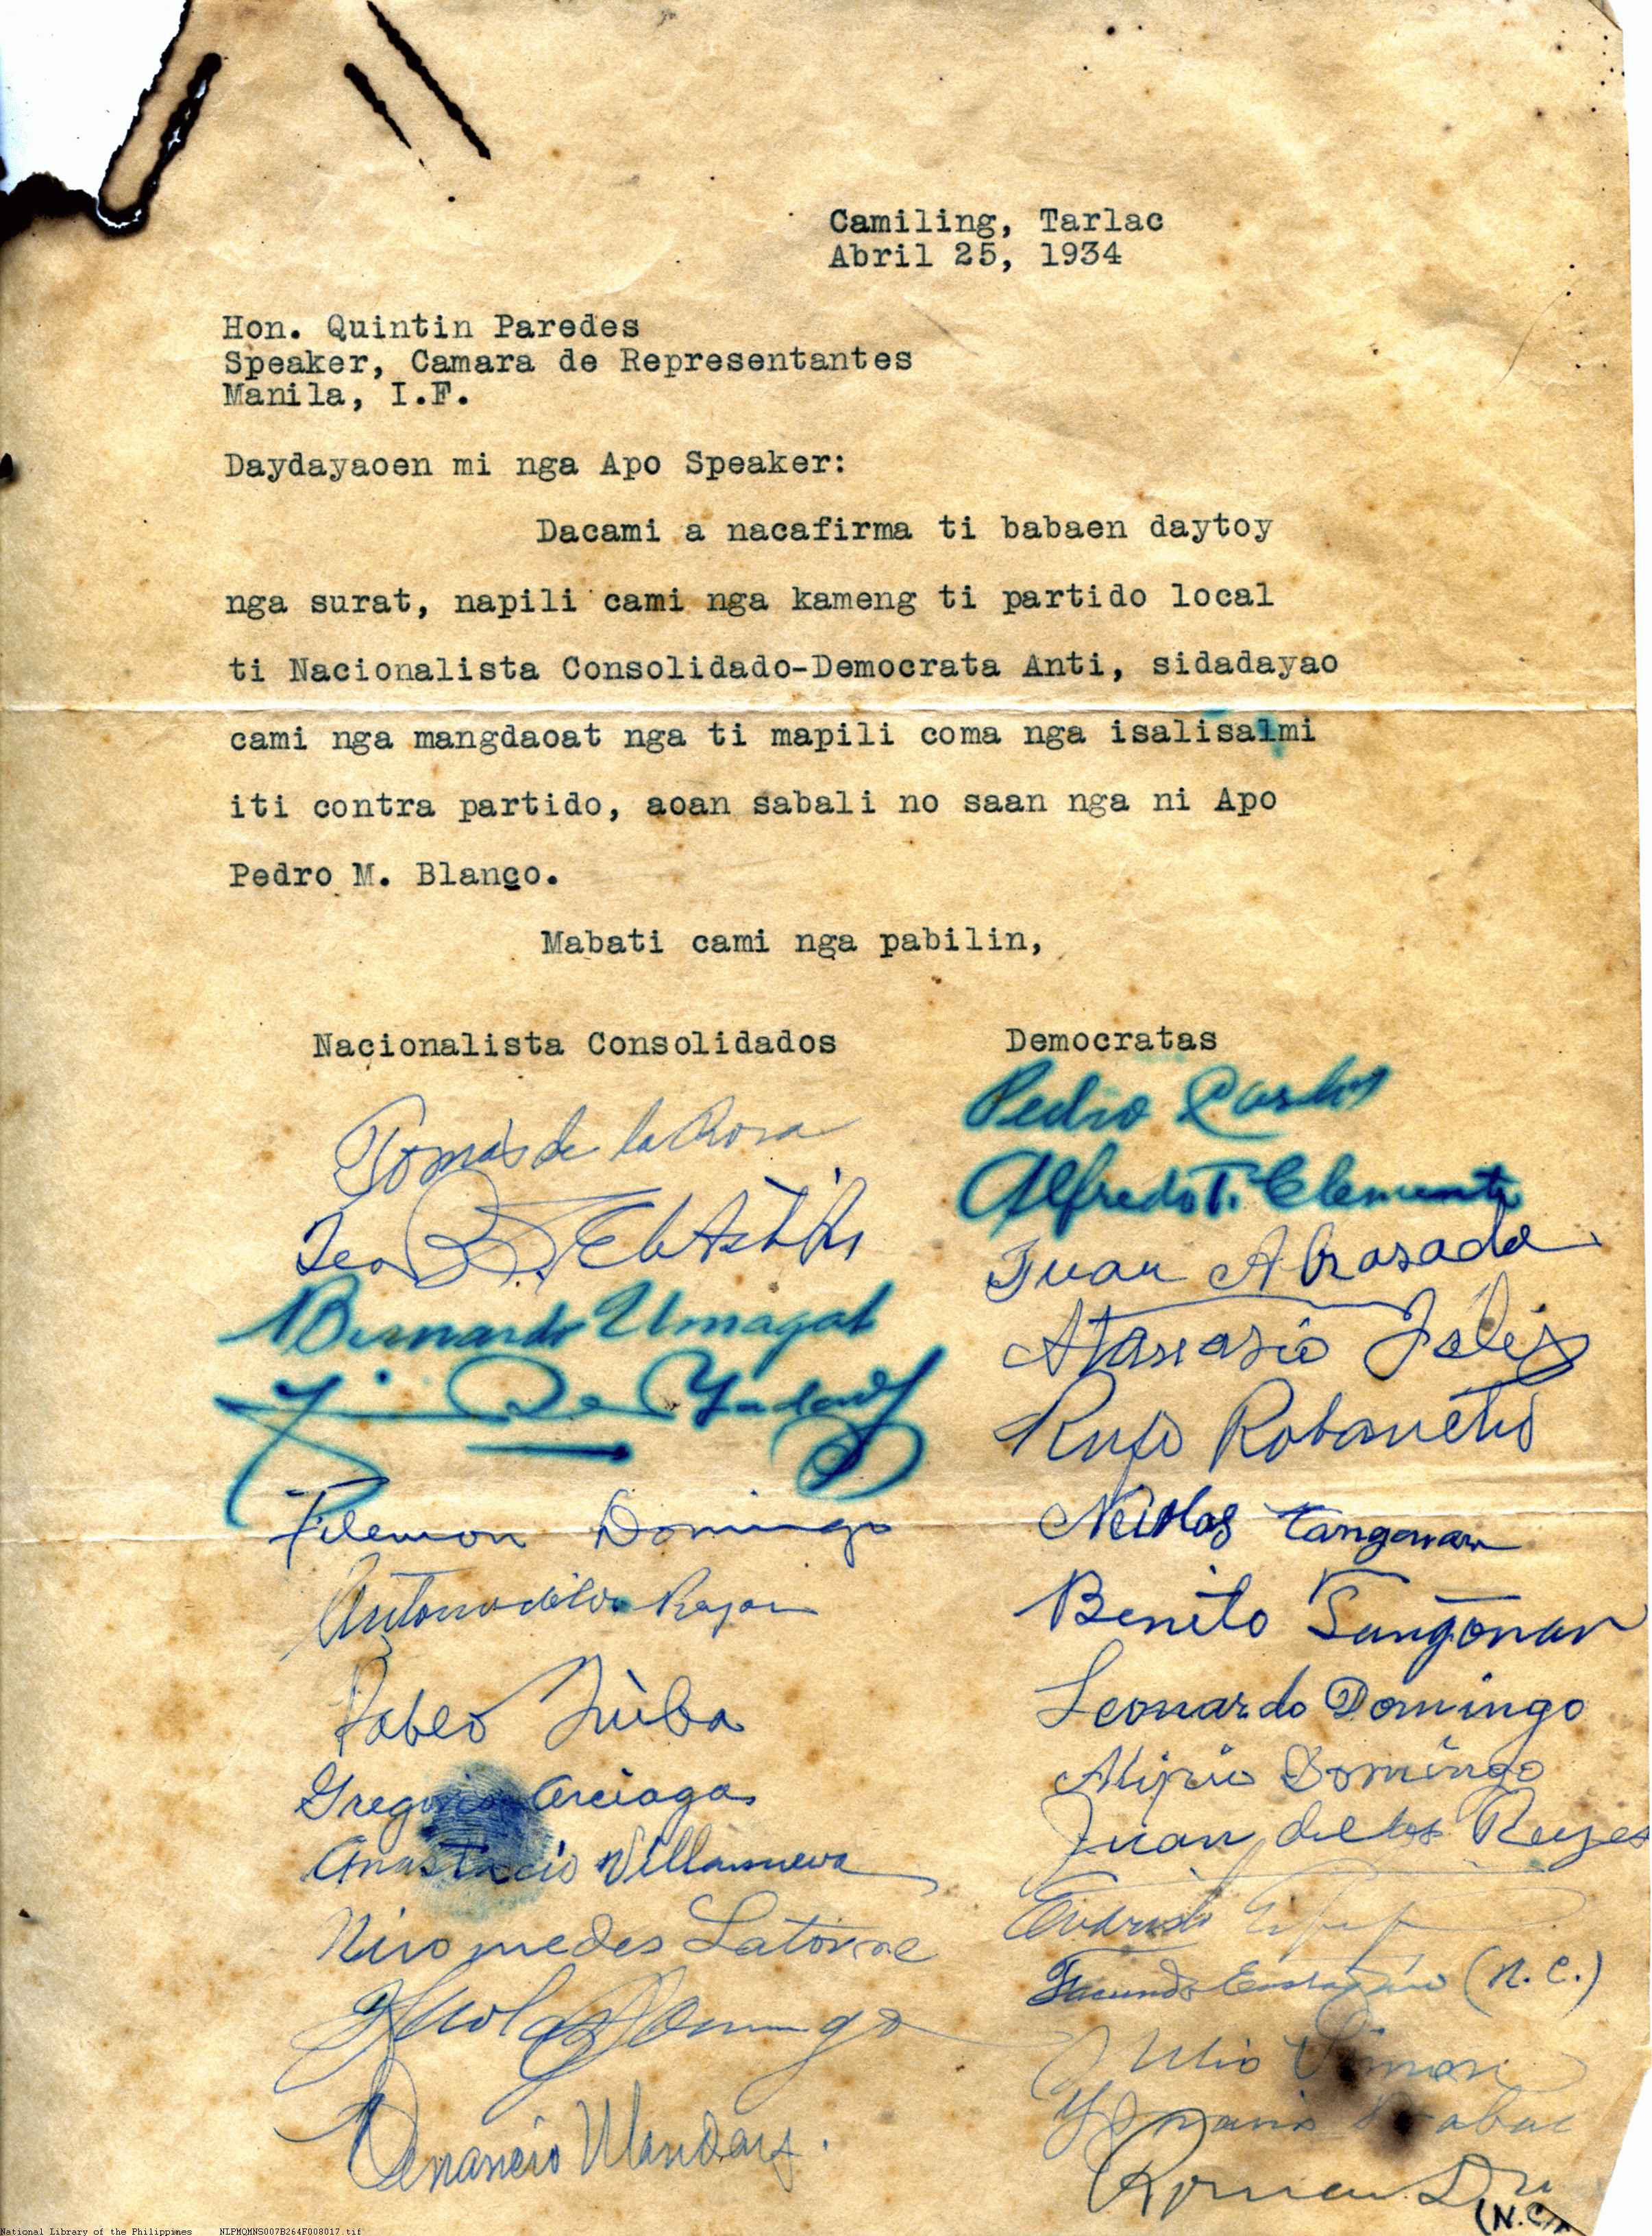 Camiling, Tarlac
Abril 25, 1934
Hon. Quintin Paredes
Speaker, Camara de Representantes
Manila, I.F.
Daydayaoen mi nga Apo Speaker:
Dacami a nacafirma ti babaen daytoy
nga surat, napili cami nga kameng ti partido local
ti Nacionalista Consolidado-Democrata Anti, sidadayao
cami nga mangdaoat nga ti mapili coma nga isalisalmi
iti contra partido, aoan sabali no saan nga ni Apo
Pedro M. Blanco.
Mabati cami nga pabilin,
Nacionalista Consolidados
Tomas de la Rosa
Bernardo Umagat
Filemon Domingo
Pableo
Gregorio Arciaga
Anastacio Villanueva
Nicomedes Latorre
Nicolas Domingo
Venancio
Democratas
Pedro
Alfredo T. Clemente
Juan Abrasada
Atanasio Felix
Rufo
Nicolas Tangonan
Benito Tangonan
Leonardo Domingo
Alipio Domingo
Juan de los Reyes
Facundo (N.C.)
Julio
Roman
(N.C.)
National Library of the Philippines NLPMQMNS007B264F008017.tif